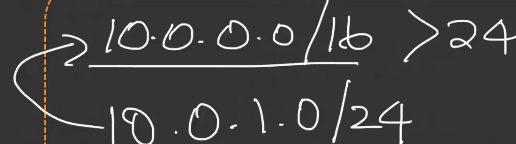 10.0.0.0/16 >24
10.0.1.0/24